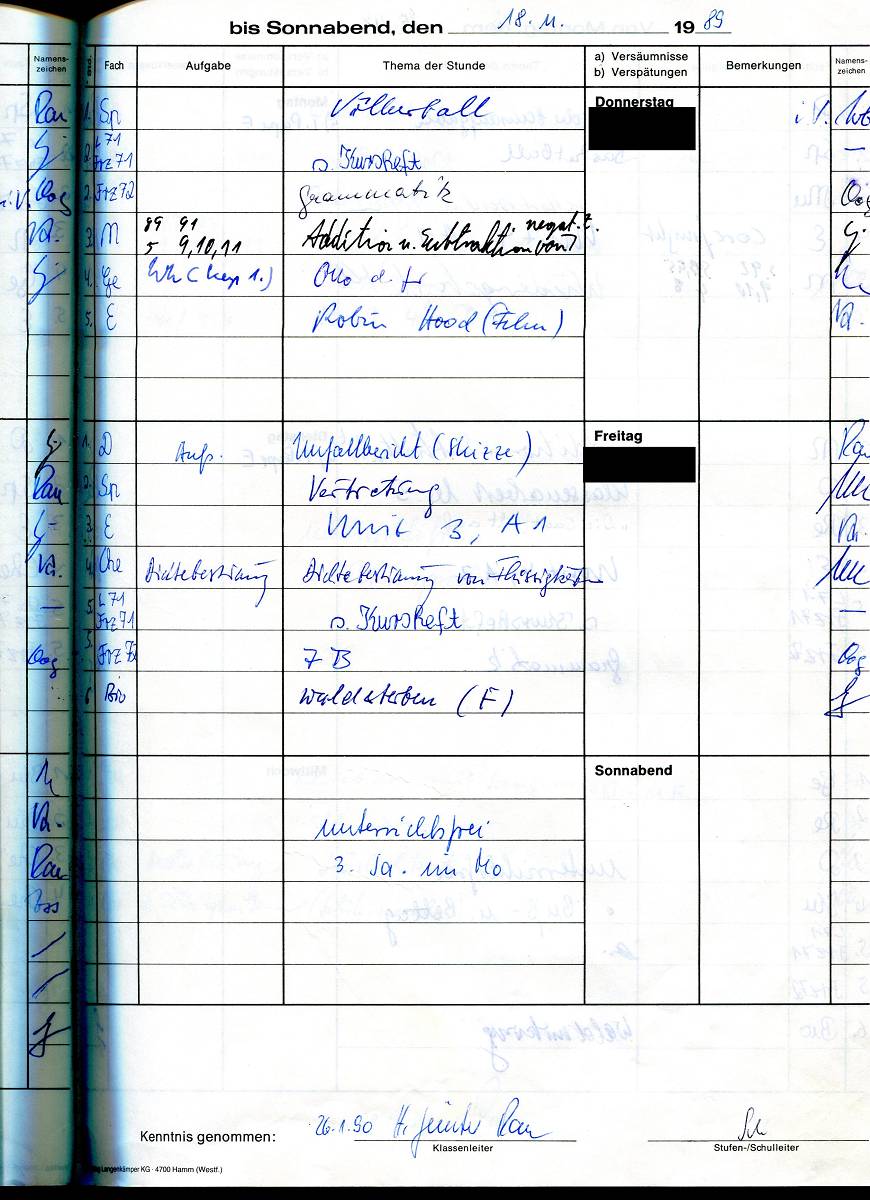 bis Sonnabend, den 18. 11. 19 89
Namens-
zeichen
Std.
Fach
Aufgabe
Thema der Stunde
a) Versäumnisse
b) Verspätungen
Bemerkungen
Namens-
zeichen
Donnerstag
Rau 1. Sp Völkerball i.V.
2. L71
Frz71 s. Kursheft —
i.V. Oog 2. Frz72 Grammatik Oog
Va. 3. M 89 91
5 9,10,11 Addition u. Subtraktion von negat. Z.
4. Ge Wh (Kap 1.) Otto d. Gr
5. E Robin Hood (Film) Va.
Freitag
1. D Aufs. Unfallbericht (Skizze) Rau
Rau 2. Sp Vertretung
3. E Unit 3, A1 Va.
Va. 4. Che Dichtebestimmung Dichtebestimmung von Flüssigkeiten
— 5. L71
Frz71 s. Kursheft —
Oog 5. Frz72 7B Oog
6 Bio Waldsterben (F)
Sonnabend
Va. unterrichtsfrei
Rau 3. Sa. im Mo
Kenntnis genommen: 26.1.90 H. Günter Rau
Klassenleiter
Stufen-/Schulleiter
Langenkämper KG · 4700 Hamm (Westf.)